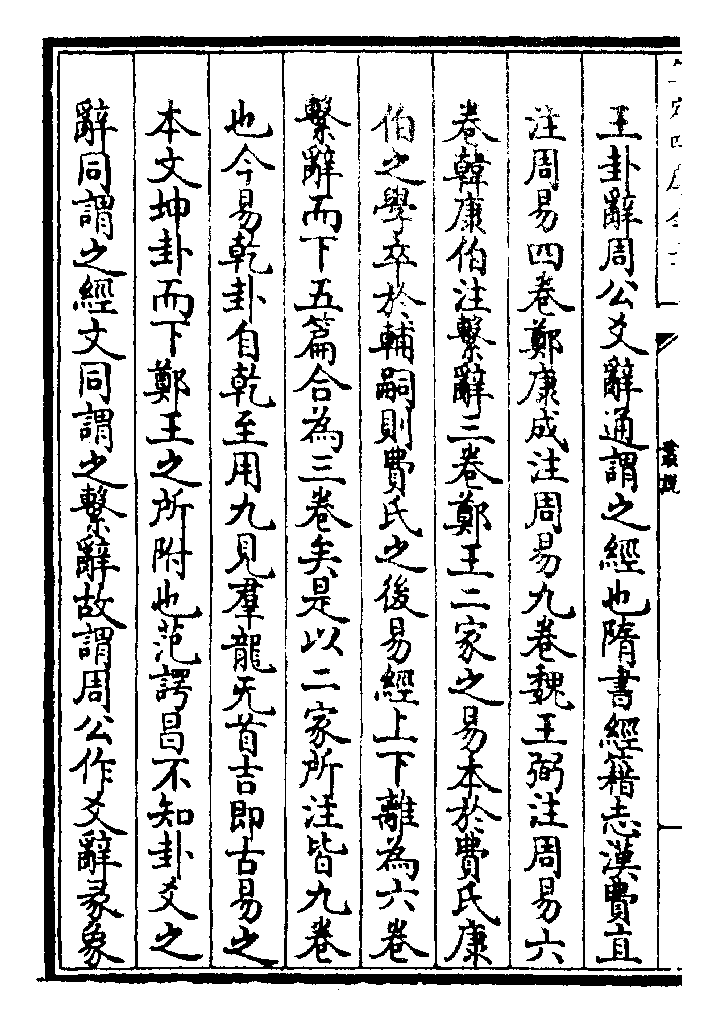 王卦辭周公爻辭通謂之經也隋書經籍志漢費直
注周易四卷鄭康成注周易九卷魏王弼注周易六
卷韓康伯注繫辭三卷鄭王二家之易本於費氏康
伯之學卒於輔嗣則費氏之後易經上下離為六卷
繫辭而下五篇合為三卷矣是以二家所注皆九卷
也今易乾卦自乾至用九見羣龍无首吉即古易之
本文坤卦而下鄭王之所附也范諤昌不知卦爻之
辭同謂之經文同謂之繫辭故謂周公作爻辭彖象